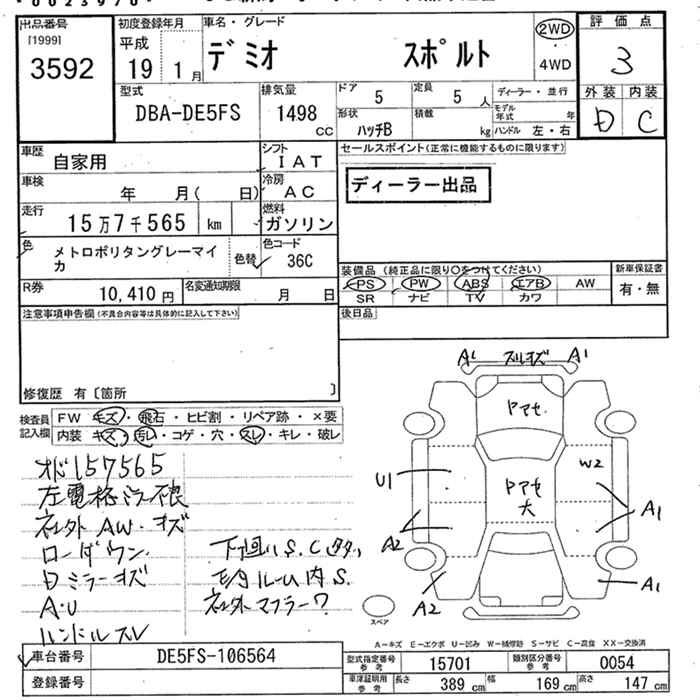 出品番号
[1999]
3592
初度登録年月
平成
19 1月
車名・グレード
デミオ スポルト
2WD
4WD
評価点
3
外装 内装
D C
型式
DBA-DE5FS
排気量
1498
cc
ドア 5
定員 5人
ディーラー・並行
形状 ハッチB
積載 kg
モデル年式 年
ハンドル 左・右
車歴 自家用
シフト IAT
車検 年 月( 日)
冷房 AC
走行 15万7千565 km
燃料 ガソリン
色 メトロポリタングレーマイカ
色替
色コード 36C
R券 10,410円
名変通知期限 月 日
セールスポイント(正常に機能するものに限ります)
ディーラー出品
装備品(純正品に限り○をつけてください)
PS PW ABS エアB AW
SR ナビ TV カワ
新車保証書
有・無
後日品
注意事項申告欄(不具合内容等は具体的に記入して下さい)
修復歴 有〔箇所 〕
検査員記入欄
FW キズ・飛石・ヒビ割・リペア跡・×要
内装 キズ・汚レ・コゲ・穴・スレ・キレ・破レ
オド157565
左電格ミラー不良
社外AW・キズ
ローダウン
Dミラーキズ
A.U
ハンドルスレ
下廻り S.C
ルーム内S.
社外マフラー?
A1 スリキズ A1
ヤマセ
U1
W2
ヤマセ
大
A1
A2
A2
A1
スペア
A-キズ E-エクボ U-凹み W-補修跡 S-サビ C-腐食 XX-交換済
車台番号 DE5FS-106564
登録番号
型式指定番号参考 15701
類別区分番号参考 0054
車庫証明用参考 長さ 389cm 幅 169cm 高さ 147cm